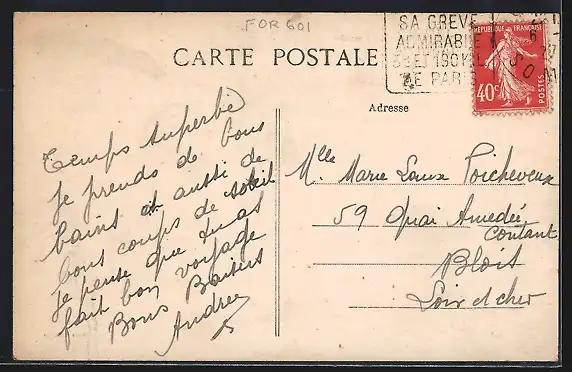 FOR601
SA GREVE
ADMIRABLE
RÉPUBLIQUE FRANÇAISE
40c
POSTES
CARTE POSTALE
Adresse
Temps superbe
je prends de bons
bains et aussi de
bons coups de soleil
je pense que tu as
fait bon voyage
Bons Baisers
Andrée
Mlle Marie Laure Poicheveux
59 Quai Amedée
Contant
Blois
Loir et cher